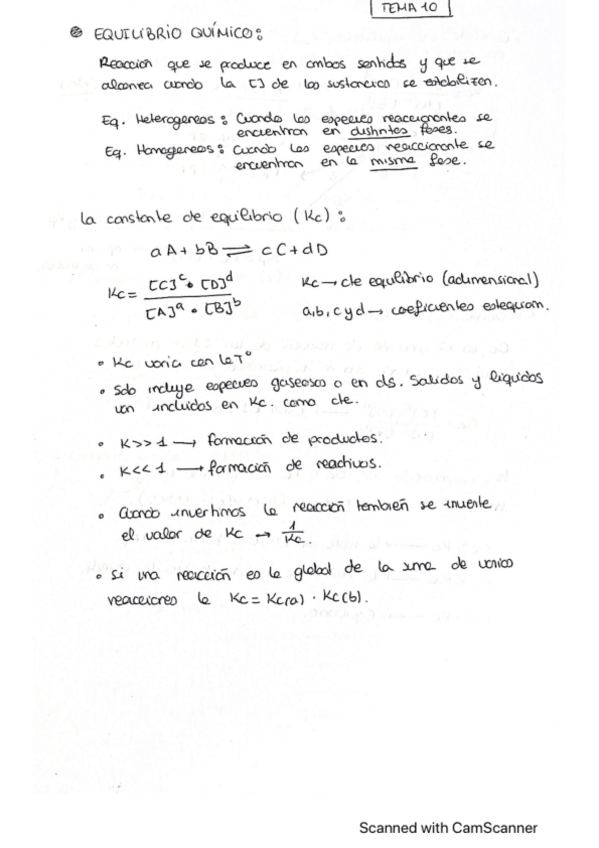 TEMA 10
EQUILIBRIO QUÍMICO:
Reacción que se produce en ambos sentidos y que se
alcanza cuando la [] de las sustancias se estabilizan.
Eq. Heterogeneos: Cuando las especies reaccionantes se
encuentran en distintas fases.
Eq. Homogeneos: Cuando las especies reaccionante se
encuentran en la misma fase.
La constante de equilibrio (Kc):
aA + bB ⇌ cC + dD
Kc = [C]^c • [D]^d / [A]^a • [B]^b
Kc → cte equilibrio (adimensional)
a, b, c y d → coeficientes estequiom.
• Kc varía con la Tª
• Solo incluye especies gaseosas o en ds. Solidos y liquidos
van incluidos en Kc. como cte.
• K>>1 → formación de productos.
• K<<1 → formación de reactivos.
• Cuando invertimos la reacción también se invierte
el valor de Kc → 1/Kc.
• Si una reacción es la global de la suma de varias
reacciones la Kc = Kc(a) · Kc(b).
Scanned with CamScanner